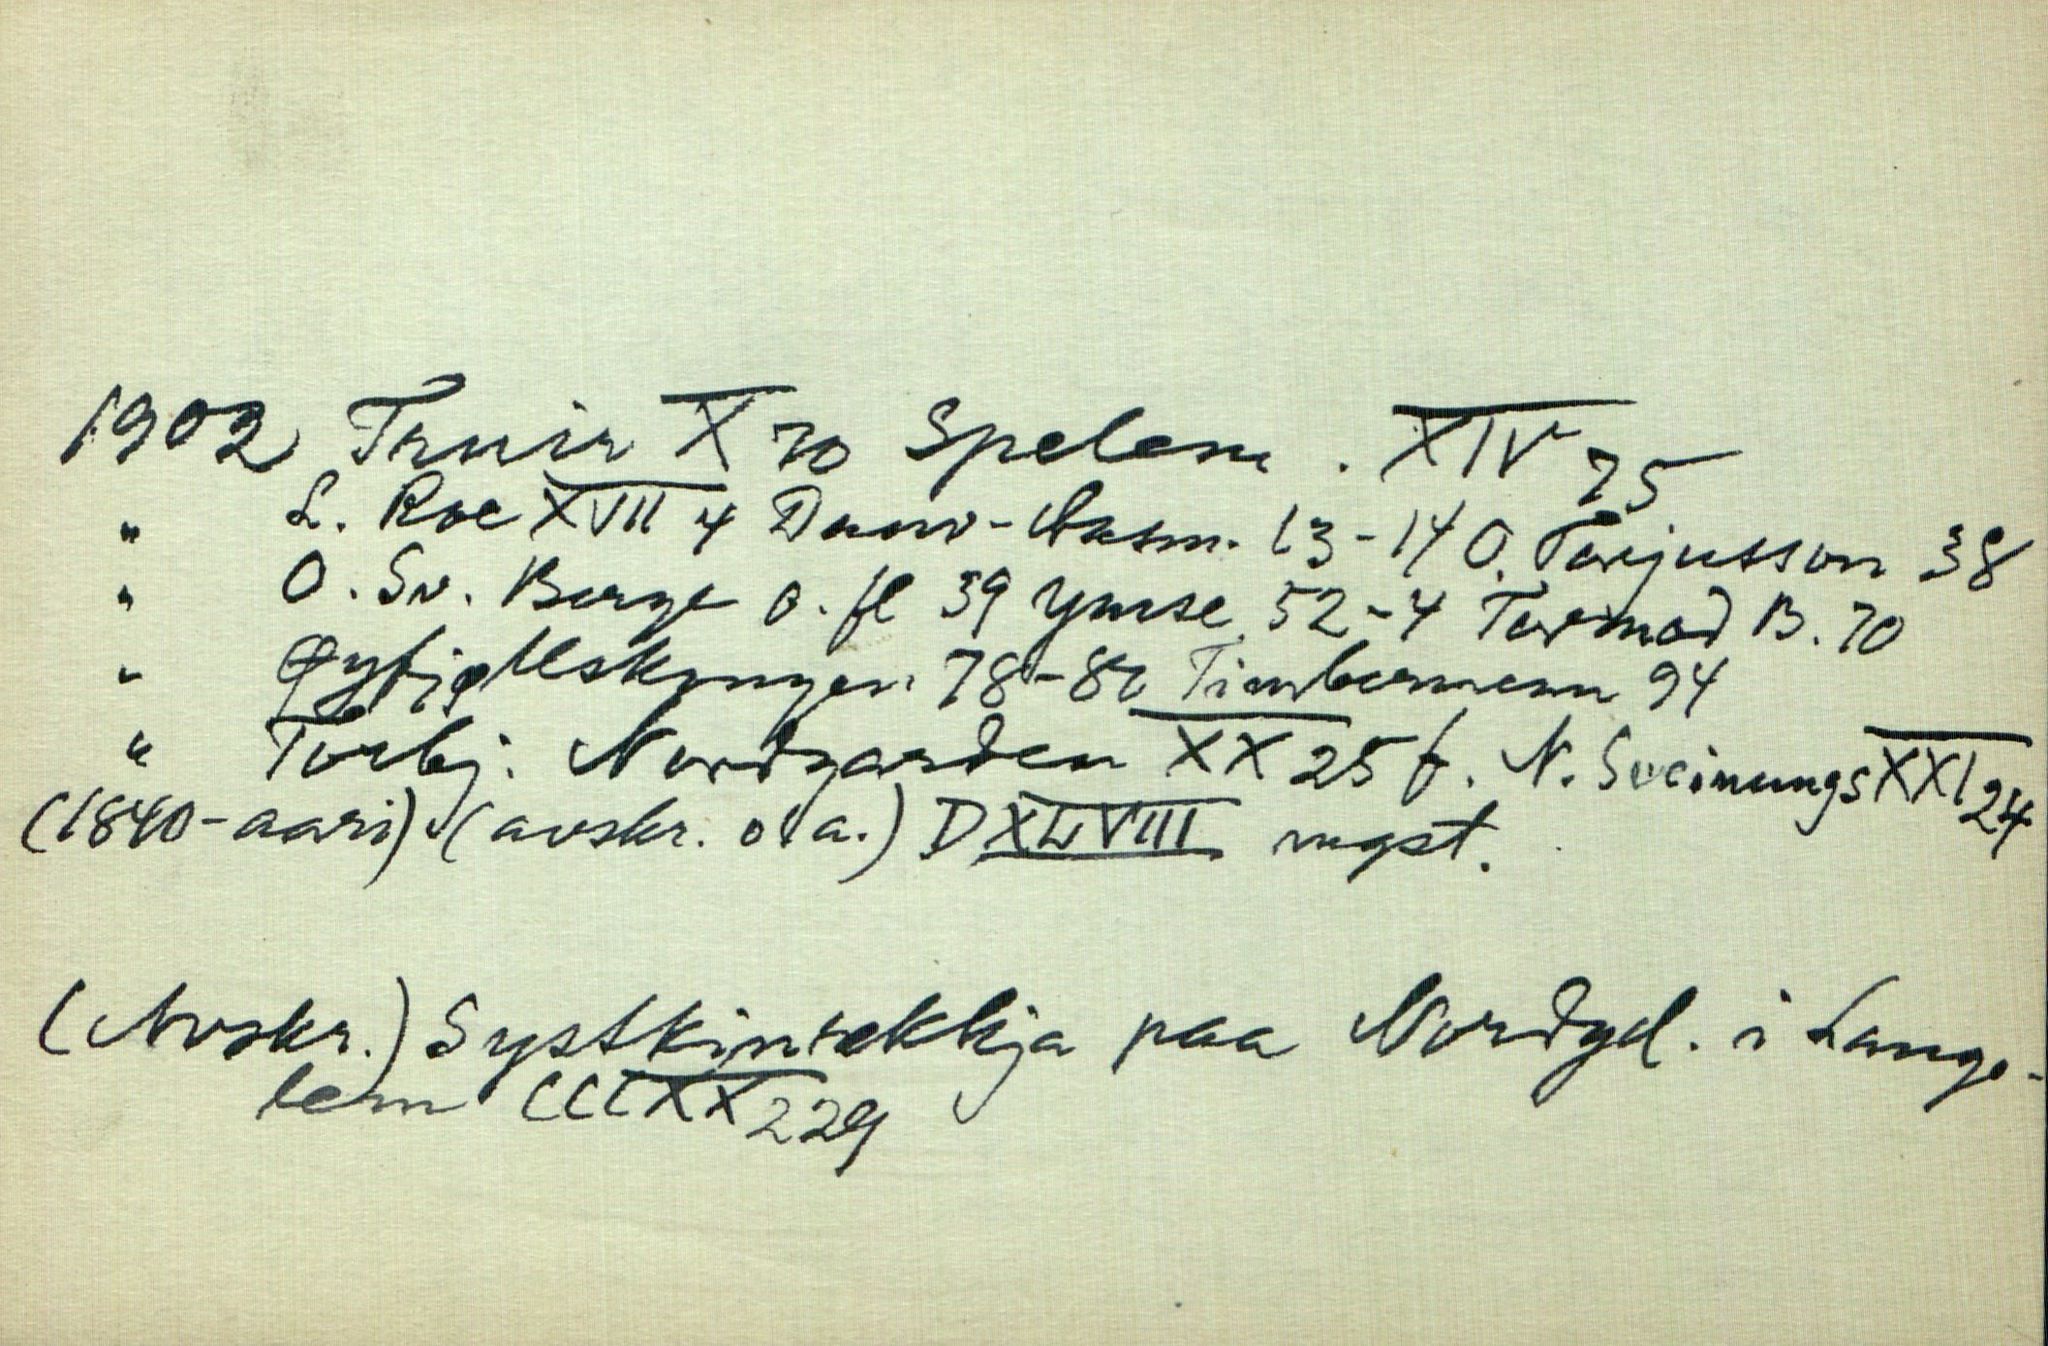 1902 Truir X 70 Spelem. XIV 75
" L. Roe XVII 4 Daurv-Rasm. 13-14 O. Tarjusson 38
" O. Sv. Berge o. fl 39 Ymse 52-4 Tormod B. 70
" Øyfjellskongen 78-80 Timbermenn 94
" Torbj. Nordgarden XX 25 f. N. Sveinungs XXI 24
(1840-aari) (avskr. o a.) DXLVIII regst.
(Avskr.) Systkinrekkja paa Nordgd. i Lange-
lem CCCXX 229